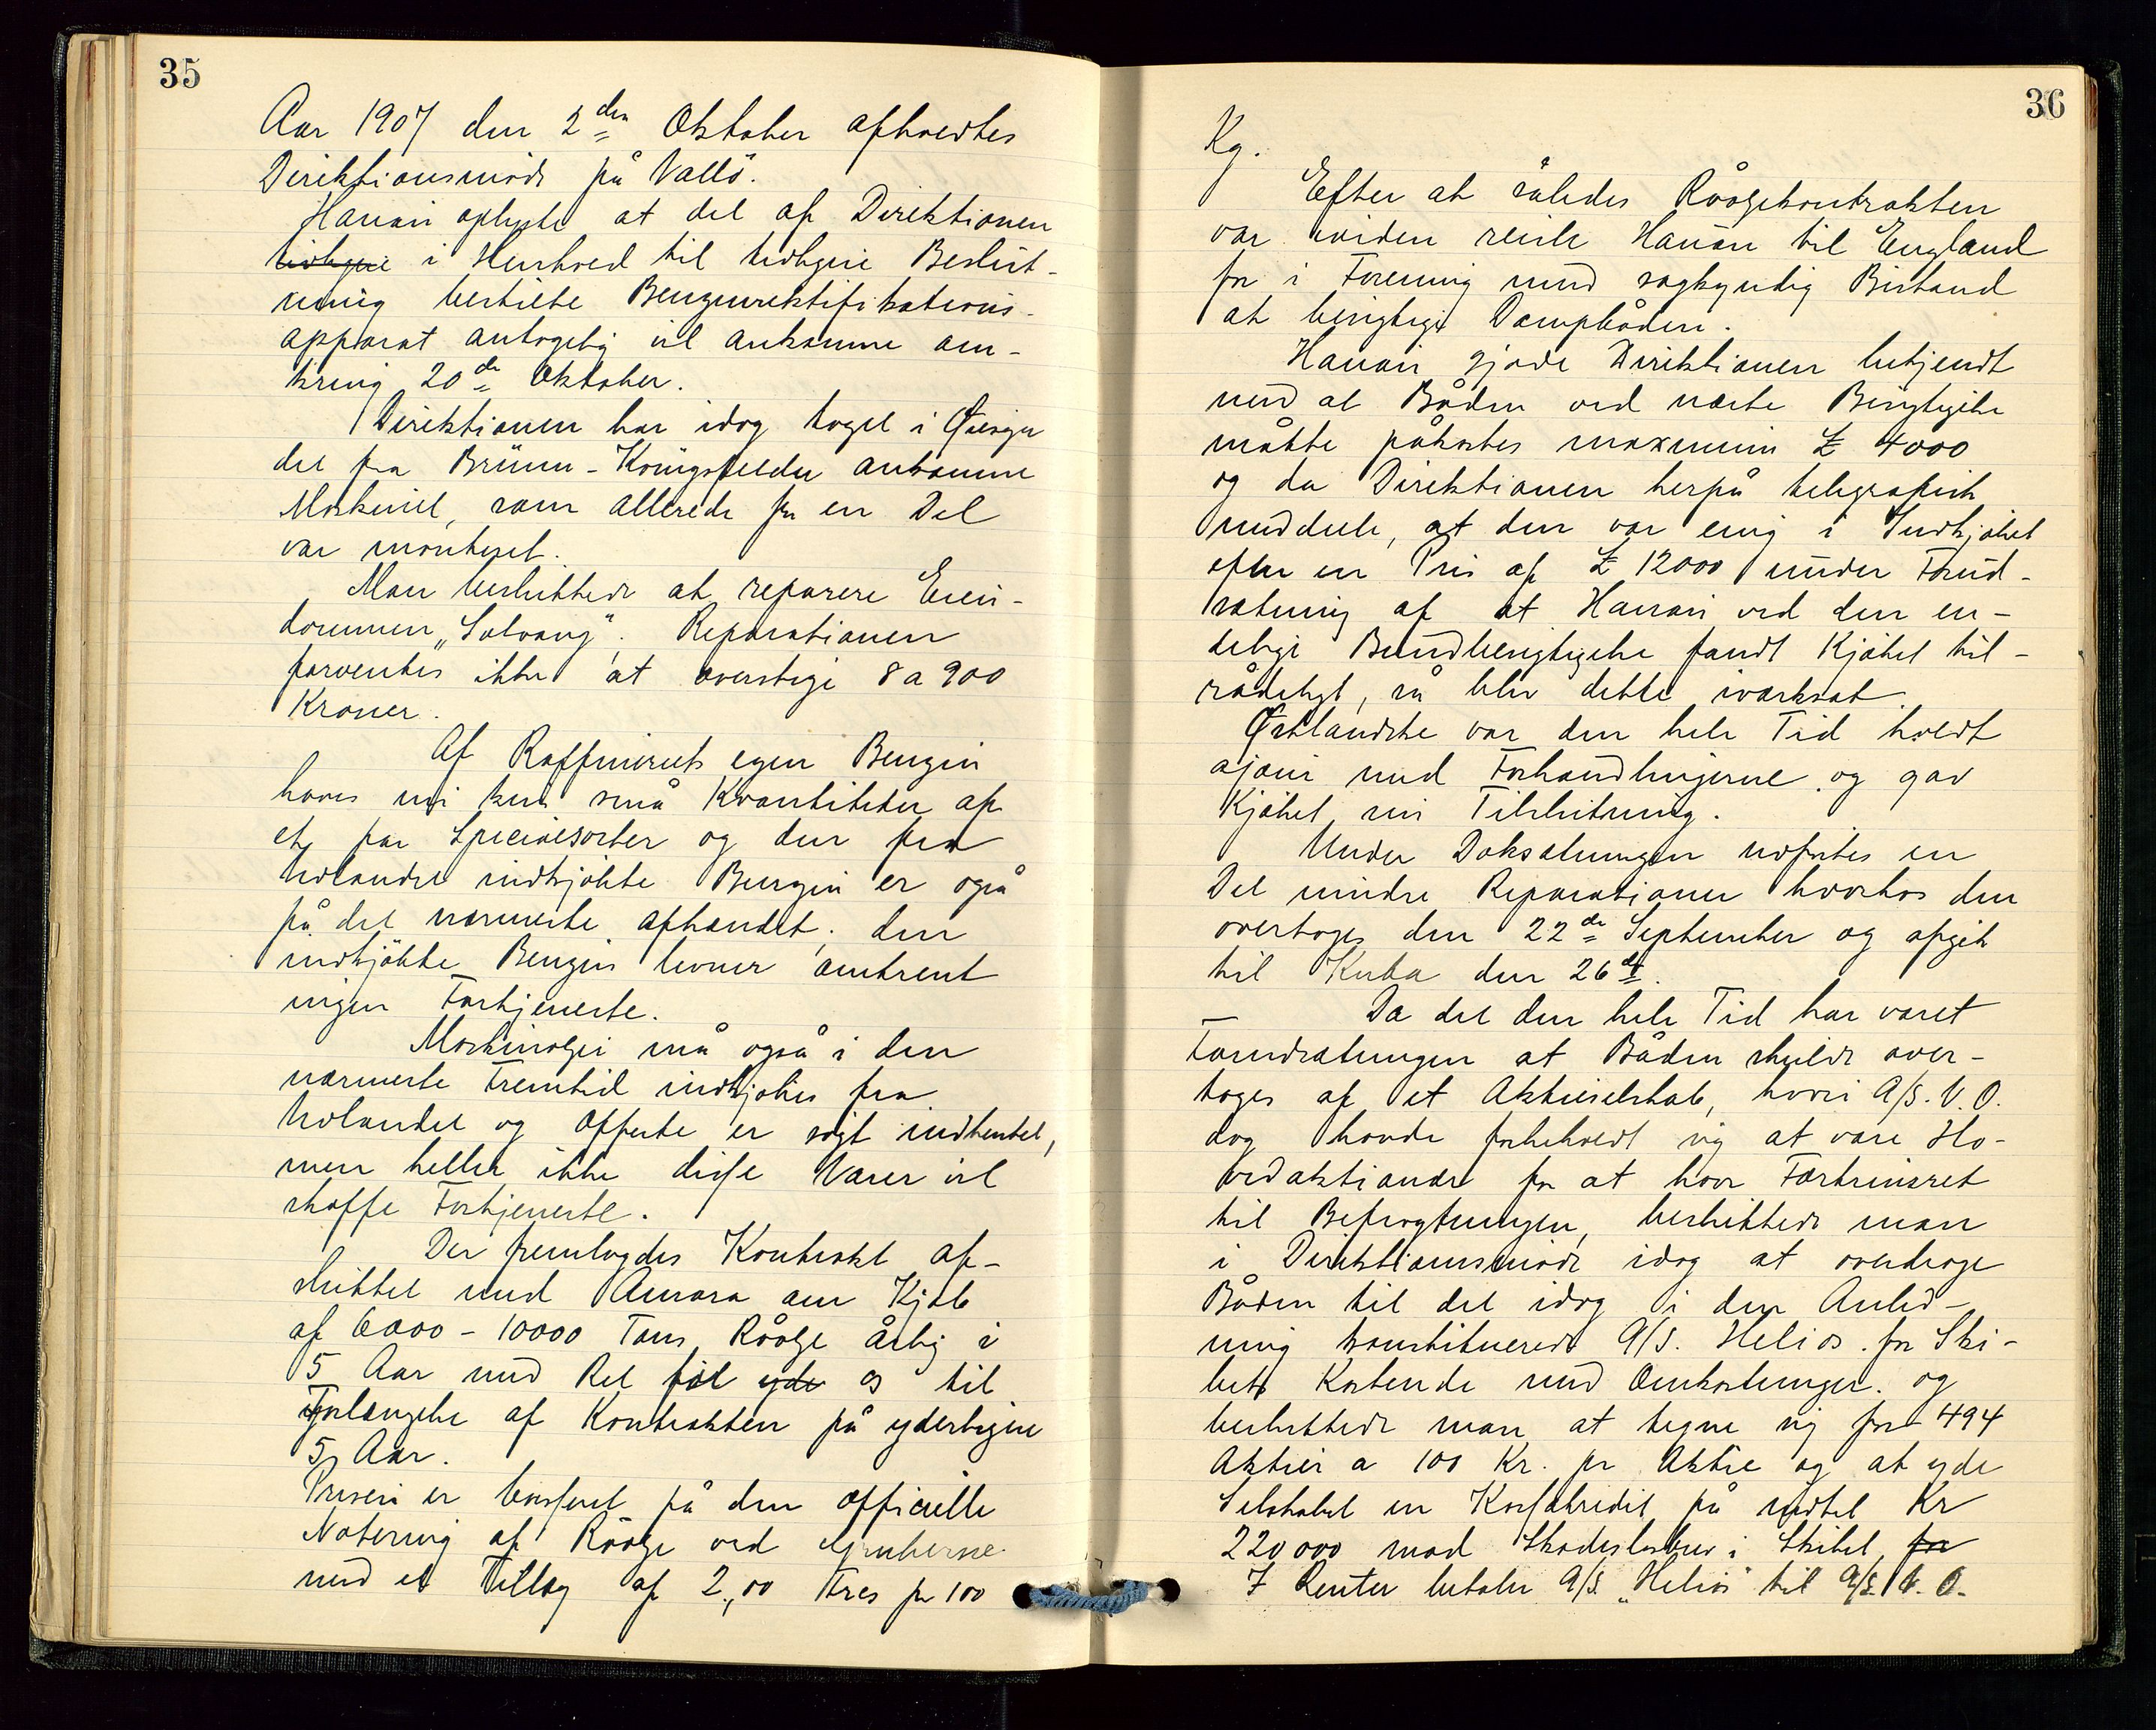 35
Aar 1907 den 2den Oktober afholdtes
Direktionsmöde på Vallö.
Hansen oplyste at det af Direktionen
tidligere i Henhold til tidligere Beslut-
ning bestilte Benzinrektifikations-
apparat antagelig vil ankomme om-
kring 20de Oktober.
Direktionen har idag taget i Øiesyn
det fra Brünn-Königsfelder ankomne
Maskineri, som allerede for en Del
var monteret.
Man besluttede at reparere Eien-
dommen „Solvang". Reparationen
forventes ikke at overstige 8 a 900
Kroner.
Af Raffineriets egen Benzin
haves nu kun små Kvantiteter af
et par Speciesorter og den fra
Udlandet indkjöbte Benzin er også
på det nærmeste afhændet; den
indkjöbte Benzin levner omtrent
ingen Fortjeneste.
Maskinolje må også i den
nærmeste Fremtid indkjöbes fra
Udlandet og Offerte er sögt indhentet,
men heller ikke disse Varer vil
skaffe Fortjeneste.
Der fremlagdes Kontrakt af-
sluttet med Aurora om Kjöb
af 6000 - 10000 Tons Råolje årlig i
5 Aar med Ret til yde os til
Forlængelse af Kontrakten på yderligere
5 Aar.
Prisen er baseret på den officielle
Notering af Råolje ved Gruberne
med et Tillæg af 2,00 Kres pr 100
36
Kg.
Efter at således Råoljekontrakten
var iorden reiste Hansen til England
for i Forening med sagkyndig Bistand
at besigtige Dampbåden.
Hansen gjorde Direktionen bekjendt
med at Båden ved næste Besigtigelse
måtte påkostes maximum £ 4000
og da Direktionen herpå telegrafisk
meddelte, at den var enig i Indkjöbet
efter en Pris af £ 12000 under Forud-
sætning af at Hansen ved den en-
delige Bundbesigtigelse fandt Kjöbet til-
rådeligt, så blev dette iværksat.
Østlandske var den hele Tid holdt
ajour med Forhandlingerne og gav
Kjöbet sin Tilslutning.
Under Doksætningen udförtes en
Del mindre Reparationer hvorhos den
overtoges den 22de September og afgik
til Kuba den 26de.
Da det den hele Tid har været
Forudsætningen at Båden skulde over-
tages af et Aktieselskab, hvori A/S. V. O.
dog havde forbeholdt sig at være Ho-
vedaktionær for at have Fortrinsret
til Befragtningen, besluttede man
i Direktionsmöde idag at overdrage
Båden til det idag i den Anled-
ning konstituerede A/S. Helios for Ski-
bets Kostende med Omkostninger og
besluttede man at tegne sig for 494
Aktier a 100 Kr. pr Aktie og at yde
Selskabet en Kassakredit på indtil Kr
220 000 mod Skadeslösbrev i Skibet, for
I Renter betaler A/S. „Helios" til A/S. V. O.